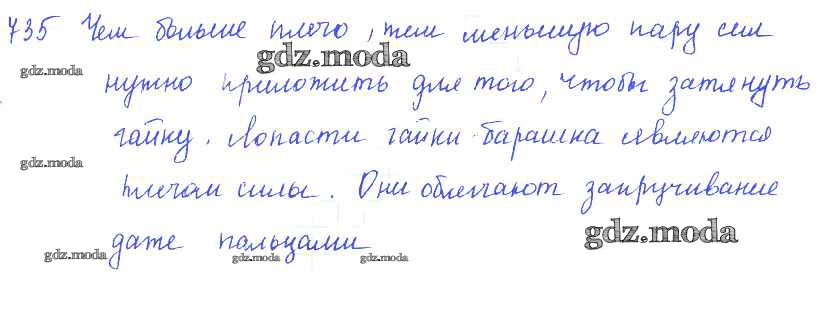 735 Чем больше плечо, тем меньшую пару сил
gdz.moda
gdz.moda
нужно приложить для того, чтобы затянуть
гайку. Лопасти гайки-барашка являются
gdz.moda
плечом силы. Они облегчают закручивание
gdz.moda
даже пальцами
gdz.moda gdz.moda gdz.moda